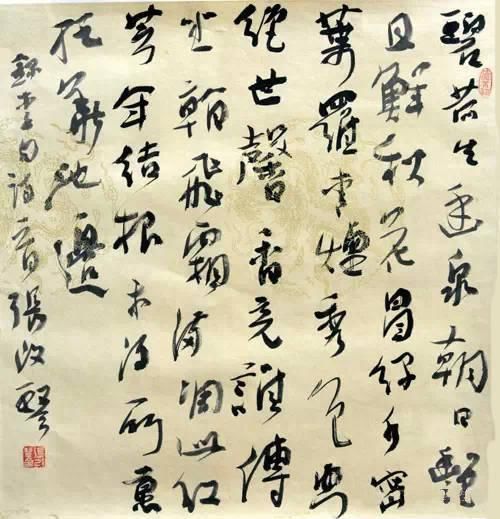 碧荷生幽泉朝日艷
且鮮秋花冒綠水密
葉羅青煙秀色空
絕世馨香竟誰傳
坐看飛霜滿凋此紅
芳年結根未得所愿
托華池邊
錄李白詩一首張改琴